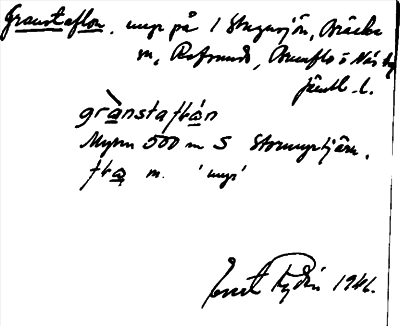 Granstaflon, myr på / Stugusjön, Bräcke
m, Refsunds, Brunflo o Näs tg
Jämtl. l.
grànstaflán
Myren 500 m S Stormyrtjärn.
fla m. 'myr'
Ernst Rydén 1946.